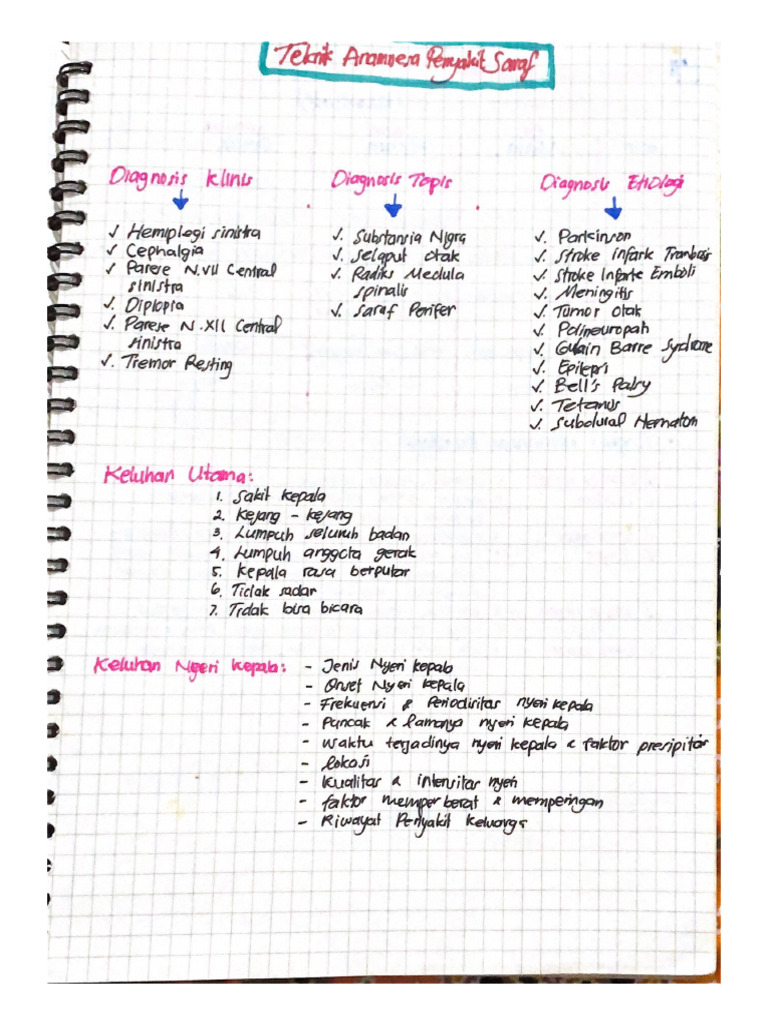 Teknik Anamnesa Penyakit Saraf
Diagnosis Klinis
✓ Hemiplegi sinistra
✓ Cephalgia
✓ Parese N.VII Central
sinistra
✓. Diplopia
✓. Parese N.XII Central
sinistra
✓. Tremor Resting
Diagnosis Topis
✓. Substansia Nigra
✓. Selaput Otak
✓. Radiks Medula
spinalis
✓. Saraf Perifer
Diagnosis Etiologi
✓. Parkinson
✓. Stroke Infark Trombosis
✓. Stroke Infark Emboli
✓. Meningitis
✓. Tumor Otak
✓. Polineuropati
✓. Gulain Barre Sydrome
✓. Epilepsi
✓. Bell's Palsy
✓. Tetanus
✓. Subdural Hematom
Keluhan Utama:
1. Sakit kepala
2. Kejang - kejang
3. Lumpuh seluruh badan
4. Lumpuh anggota gerak
5. Kepala rasa berputar
6. Tidak sadar
7. Tidak bisa bicara
Keluhan Nyeri Kepala:
- Jenis Nyeri kepala
- Onset Nyeri kepala
- Frekuensi & Periodisitas nyeri kepala
- Puncak & lamanya nyeri kepala
- Waktu terjadinya nyeri kepala & faktor presipitas
- Lokasi
- Kualitas & intensitas nyeri
- faktor memperberat & memperingan
- Riwayat Penyakit Keluarga